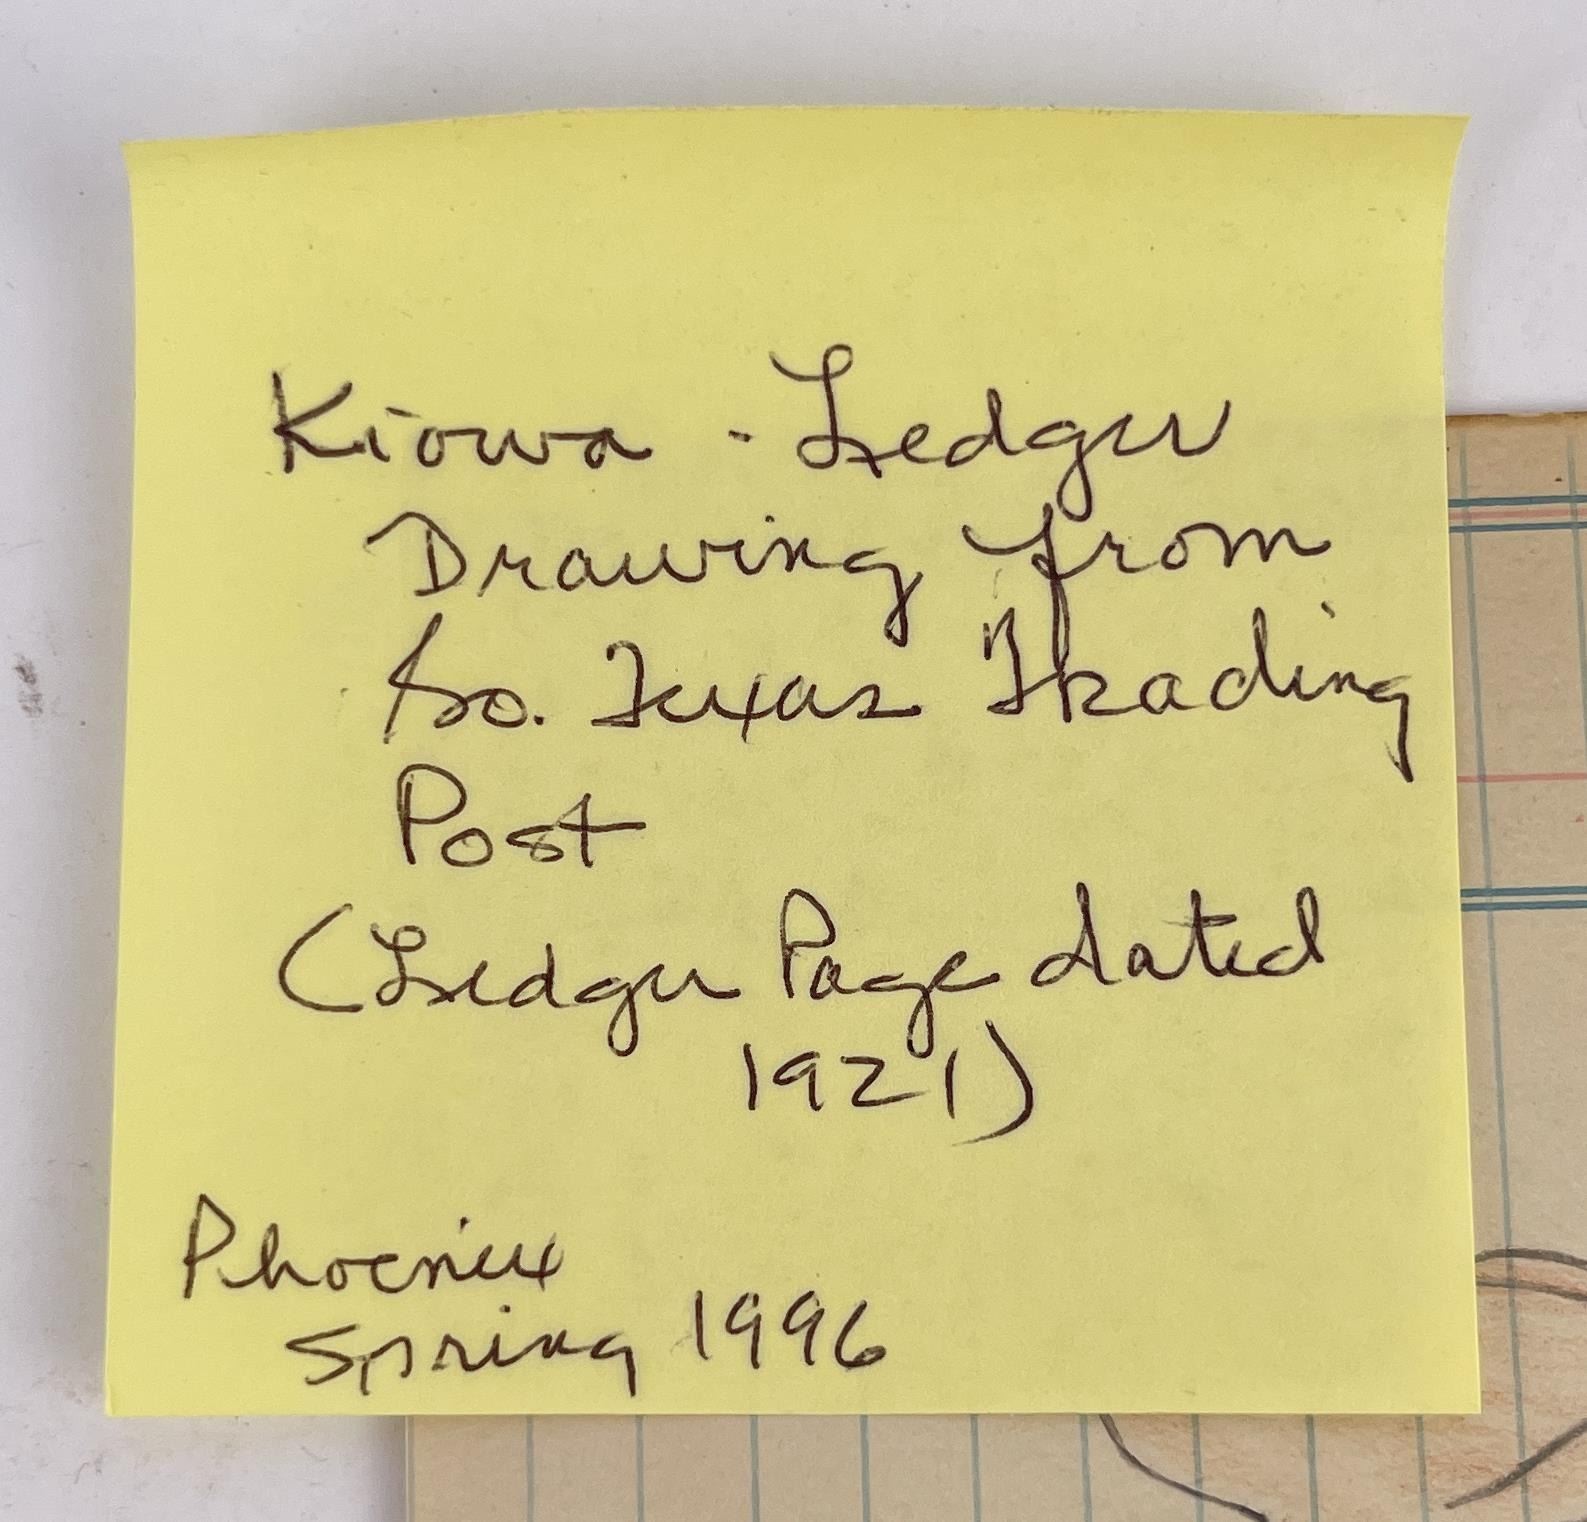 Kiowa - Ledger
Drawing from
So. Texas Trading
Post
(Ledger Page dated
1921)
Phoenix
Spring 1996